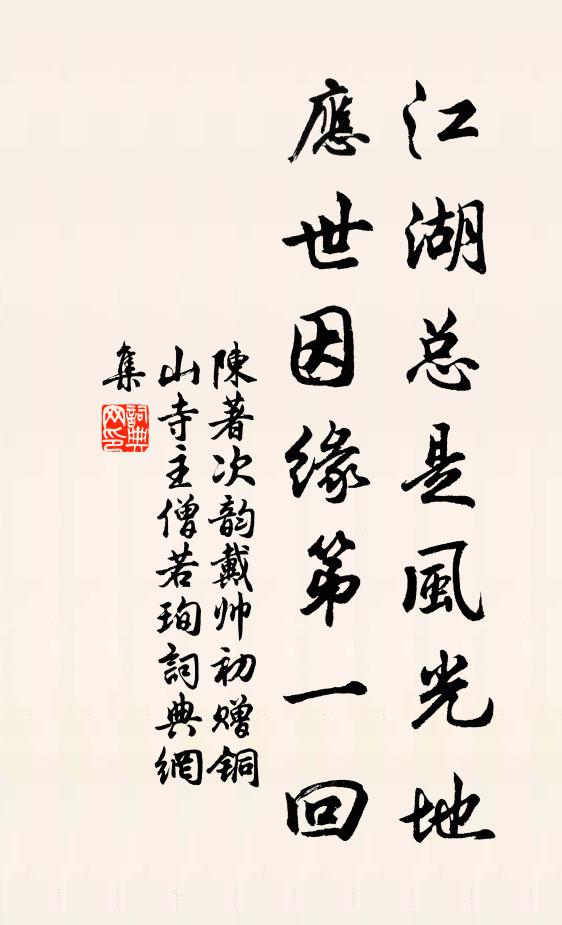 江湖总是風光地
應世因缘第一回
陳著次韵戴帅初赠铜
山寺主僧若珣詞典網
集
詞典网印